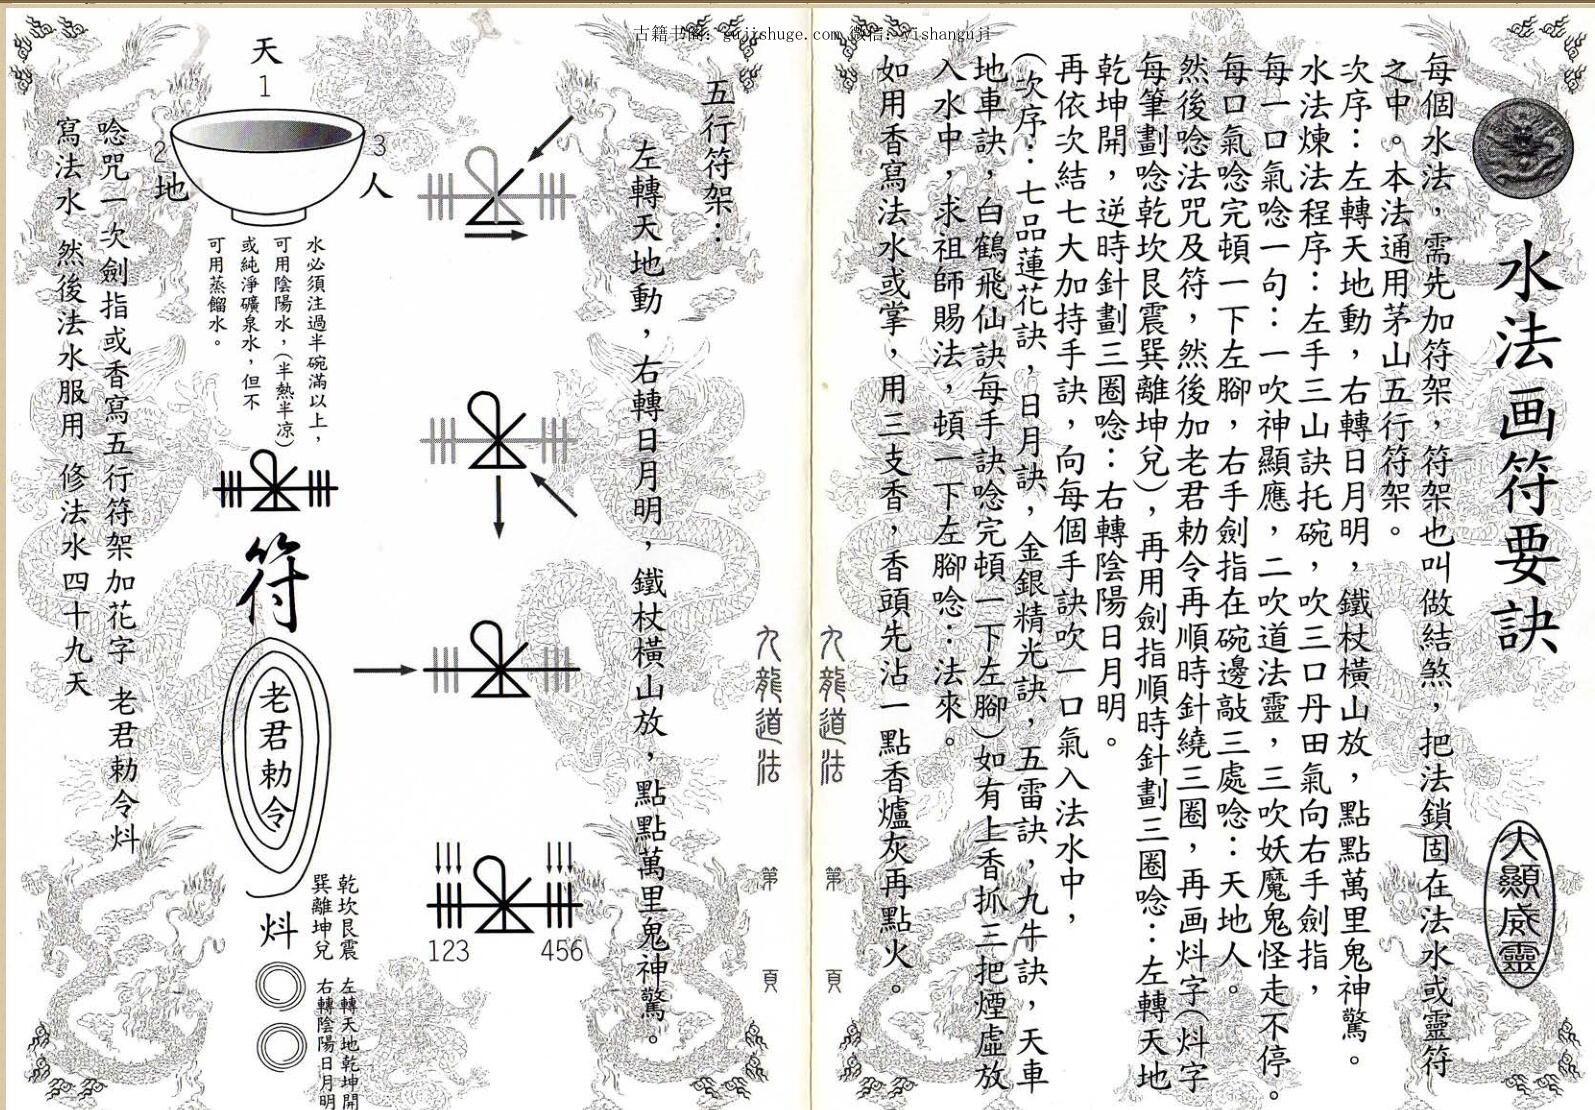 古籍书阁：gujishuge.com 微信：yishanguji
水法画符要訣
大顯威靈
每個水法，需先加符架，符架也叫做結煞，把法鎖固在法水或靈符
之中。本法通用茅山五行符架。
次序：左轉天地動，右轉日月明，鐵杖橫山放，點點萬里鬼神驚。
水法煉法程序：左手三山訣托碗，吹三口丹田氣向右手劍指，
每一口氣唸一句：一吹神顯應，二吹道法靈，三吹妖魔鬼怪走不停。
每口氣唸完頓一下左腳，右手劍指在碗邊敲三處唸：天地人。
然後唸法咒及符，然後加老君勅令再順時針繞三圈，再画炓字（炓字
每筆劃唸乾坎艮震巽離坤兌），再用劍指順時針劃三圈唸：左轉天地
乾坤開，逆時針劃三圈唸：右轉陰陽日月明。
再依次結七大加持手訣，向每個手訣吹一口氣入法水中，
（次序：七品蓮花訣，日月訣，金銀精光訣，五雷訣，九牛訣，天車
地車訣，白鶴飛仙訣每手訣唸完頓一下左腳）如有上香抓三把煙虛放
入水中，求祖師賜法，頓一下左腳唸：法來。
如用香寫法水或掌，用三支香，香頭先沾一點香爐灰再點火。
九龍道法
第 頁
九龍道法
第 頁
五行符架：
左轉天地動，右轉日月明，鐵杖橫山放，點點萬里鬼神驚。
123
456
天
1
2
地
3
人
水必須注過半碗滿以上，
可用陰陽水，（半熱半凉）
或純淨礦泉水，但不
可用蒸餾水。
符
老君勅令
炓
乾坎艮震
巽離坤兌
左轉天地乾坤開
右轉陰陽日月明
唸咒一次劍指或香寫五行符架加花字 老君勅令炓
寫法水 然後法水服用 修法水四十九天